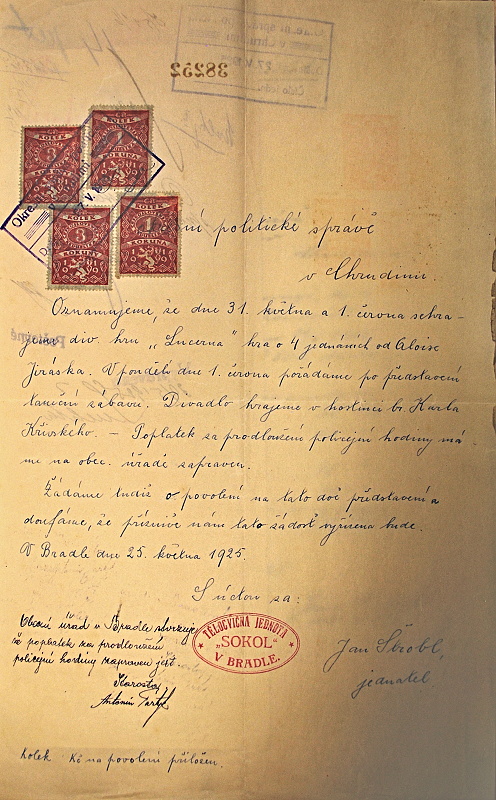 38252
KOLEK
3
KORUNY
KOLEK
1
KORUNA
KOLEK
KORUNY
KOLEK
1
KORUNA
politické správě
v Chrudimi.
Oznamujeme, že dne 31. května a 1. června sehra-
jeme div. hru „Lucerna" hra o 4 jednáních od Aloise
Jiráska. V pondělí dne 1. června pořádáme po představení
taneční zábavu. Divadlo hrajeme v hostinci br. Karla
Křivského. — Poplatek za prodloužení policejní hodiny má
me na obec. úřadě zapraven.
Žádáme tudíž o povolení na tato dvě představení a
doufáme, že příznivě nám tato žádost vyřízena bude.
V Bradle dne 25. května 1925.
S úctou za:
TĚLOCVIČNÁ JEDNOTA
"SOKOL"
V BRADLE.
Obecní úřad v Bradle stvrzuje,
že poplatek za prodloužení
policejní hodiny zapraven jest
Starosta
Antonín
Jan Štrobl,
jednatel
Kolek Kč na povolení přiložen.